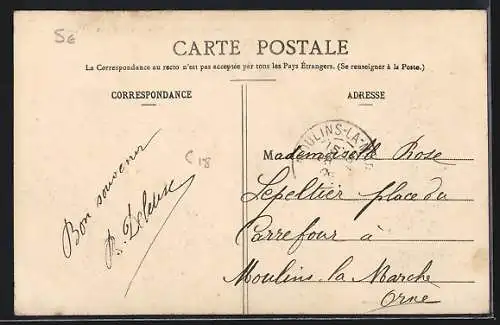 5€
CARTE POSTALE
La Correspondance au recto n'est pas acceptée par tous les Pays Étrangers. (Se renseigner à la Poste.)
CORRESPONDANCE
Bon souvenir
C18
ADRESSE
MOULINS-LA-M
Mademoiselle Rose
Lepeltier place du
Carrefour à
Moulins-la Marche
Orne